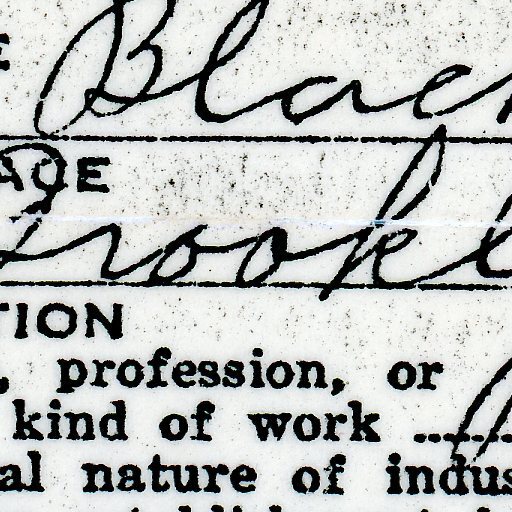 E Blac
ACE
rookl
TION
, profession, or
kind of work ........
al nature of indus